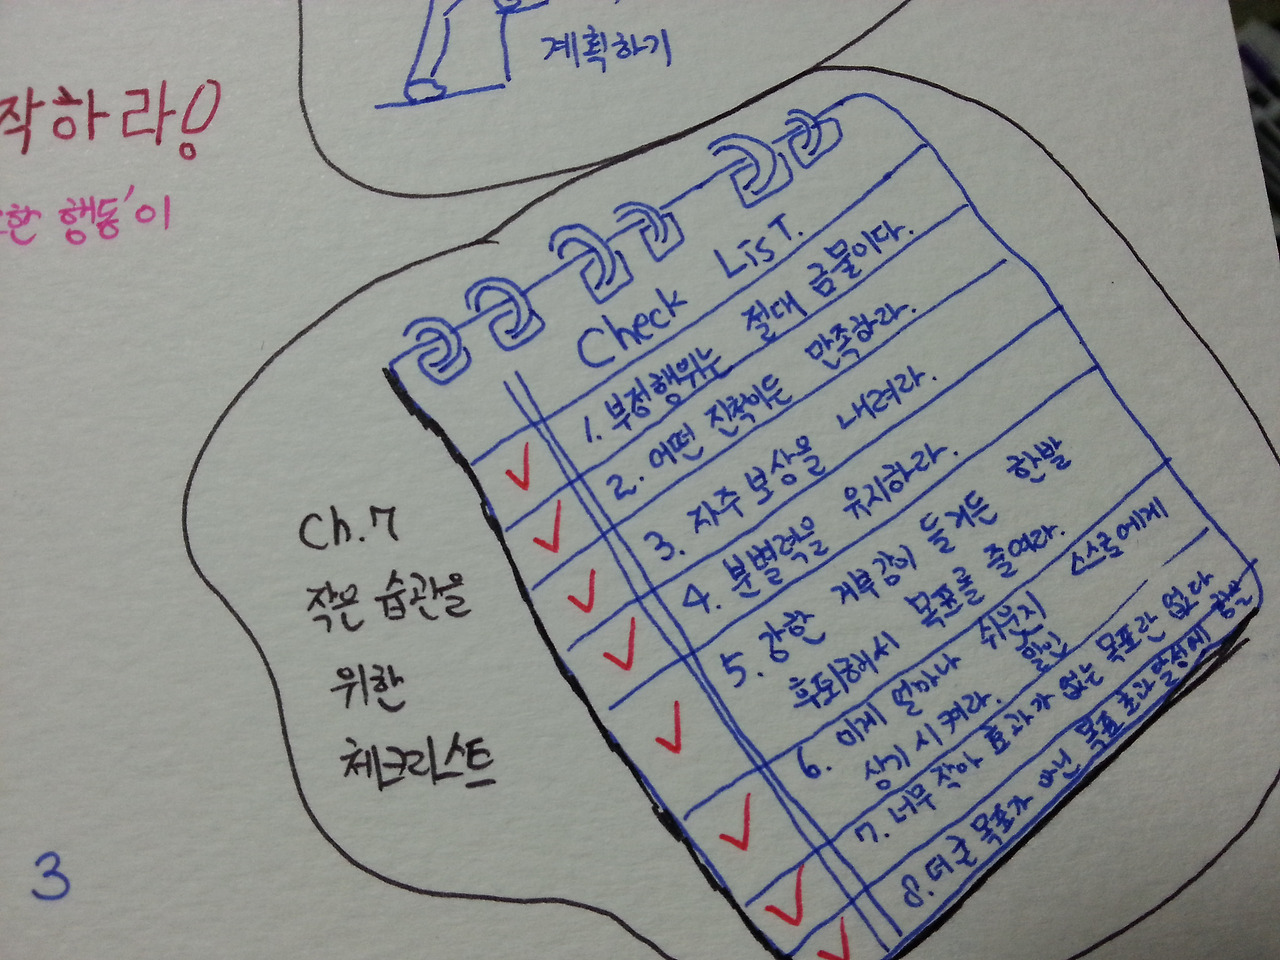 계획하기
작하라!
한 행동'이
Check LisT.
1. 부정행위는 절대 금물이다.
2. 어떤 진척이든 만족하라.
3. 자주 보상을 내려라.
4. 분별력을 유지하라.
5. 강한 거부감이 들거든 한발
후퇴해서 목표를 줄여라.
6. 이게 얼마나 쉬운지 스스로에게
상기시켜라. 할일
7. 너무 작아 효과가 없는 목표란 없다
8. 더 큰 목표가 아닌 목표 초과 달성에
Ch.7
작은 습관을
위한
체크리스트
3